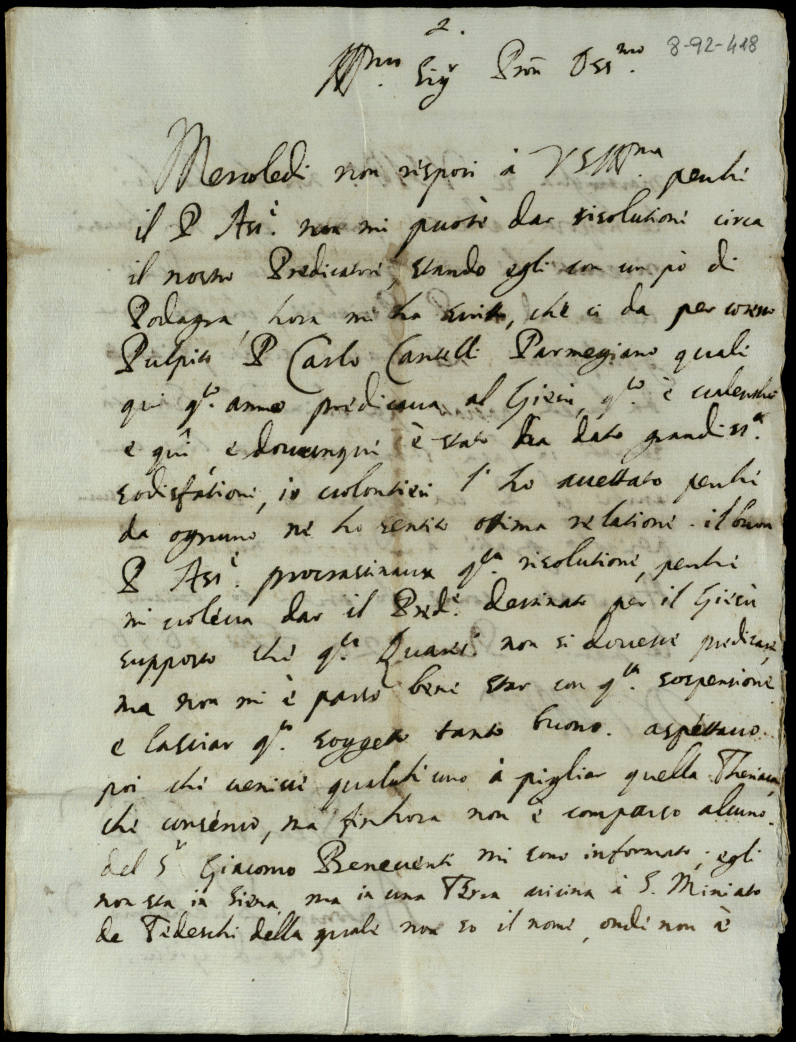 2.
8-92-418
Illmo. Sigr Pron Ossmo.
Mercoledi non risposi à VSIllma. perche
il P Assi.e non mi puotè dar risolutione circa
il nostro Predicatore, stando egli con un pò di
Podagra, hora mi ha scritto, che ci da per cotesto
Pulpito P Carlo Cantelli Parmegiano quale
qui qsto. anno predicava al Giesù, qsto. è valenthuo
e quì e dovunque è stato ha dato grandissa.
sodisfatione, io volontieri l'ho accettato perche
da ognuno ne ho sentito ottima relatione. il buon
P Assi.e procrastinava qsta. risolutione, perche
mi voleva dar il Pred.e destinato per il Giesù
supposto che qsta. Quares.e non si dovesse predicare,
ma non mi è parso bene star con qsta. sospensione
e lasciar qsto. soggetto tanto buono. aspettavo
poi che venisse qualcheuno à pigliar quella Theriaca,
che conservo, ma finhora non è comparso alcuno.
del Sr Giacomo Beneventi mi sono informato; egli
non sta in Siena, ma in una Terra vicina à S. Miniato
de Tedeschi della quale non so il nome, onde non è